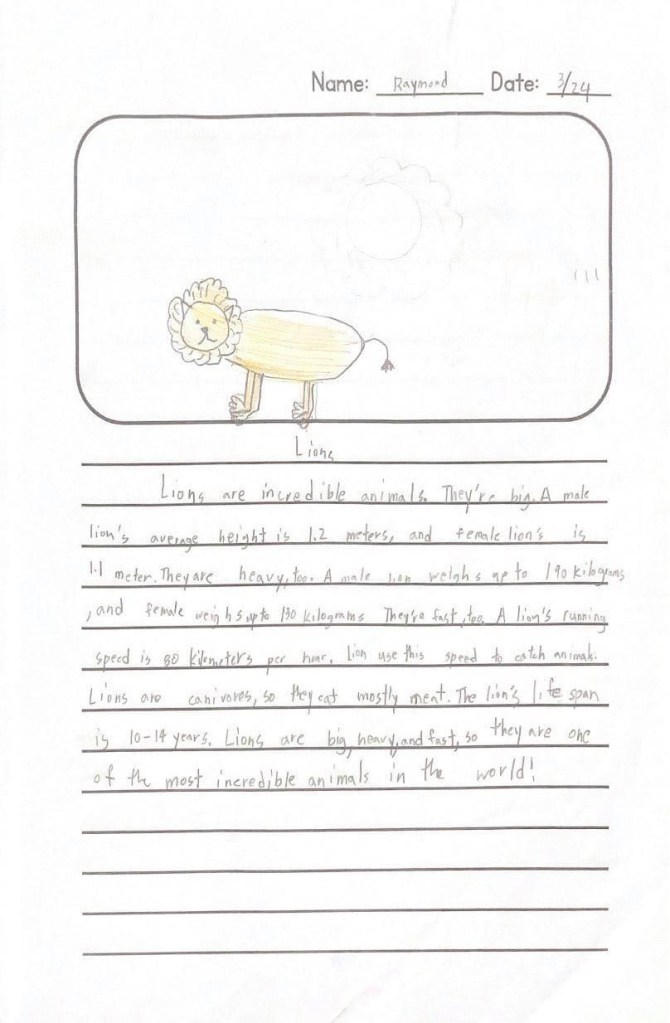 Name: Raymond Date: 3/24
Lions
Lions are incredible animals. They're big. A male
lion's average height is 1.2 meters, and female lion's is
1.1 meter. They are heavy, too. A male lion weighs up to 190 kilograms
, and female weighs up to 130 kilograms They're fast, too. A lion's running
speed is 80 kilometers per hour. lion use this speed to catch animals.
Lions are canivores, so they eat mostly meat. The lion's life span
is 10-14 years. Lions are big, heavy, and fast, so they are one
of the most incredible animals in the world!